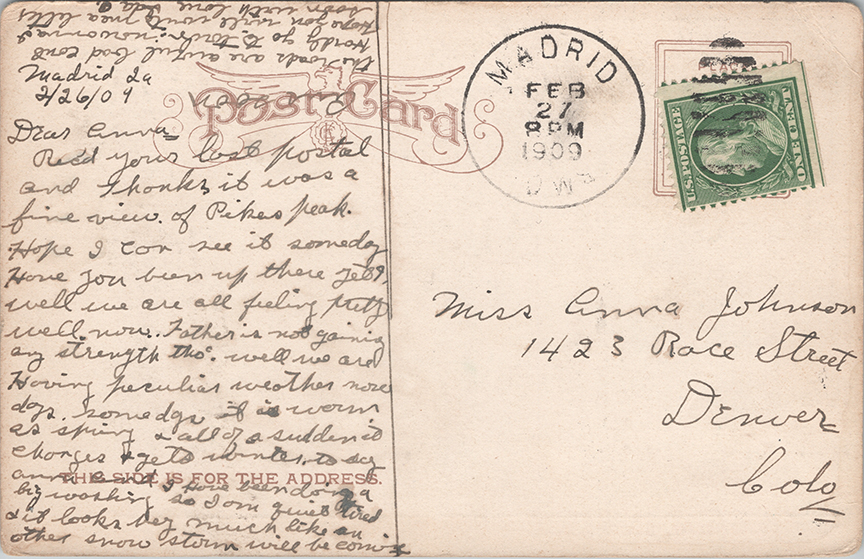 Madrid Ia
2/26/09
Dear Anna
Recd your last postal
and thanks it was a
fine view of Pikes peak.
Hope I can see it someday
Have you been up there yet?
well we are all feeling pretty
well now. Father is not gaining
any strength tho. well we are
Having peculiar weather now
days. Some days it is warm
as spring & all of a sudden it
changes & gets winter. to day
I have been doing a
big washing so I am quiet tired
& it looks very much like an
other snow storm will be coming
the roads are awful bad cant
Hardly go to town
Hope you will write me a letter
soon with love Ida
Post Card
THIS SIDE IS FOR THE ADDRESS.
MADRID
FEB
27
8 PM
1909
IOWA
U.S. POSTAGE
ONE CENT
Miss Anna Johnson
1423 Race Street
Denver
Colo